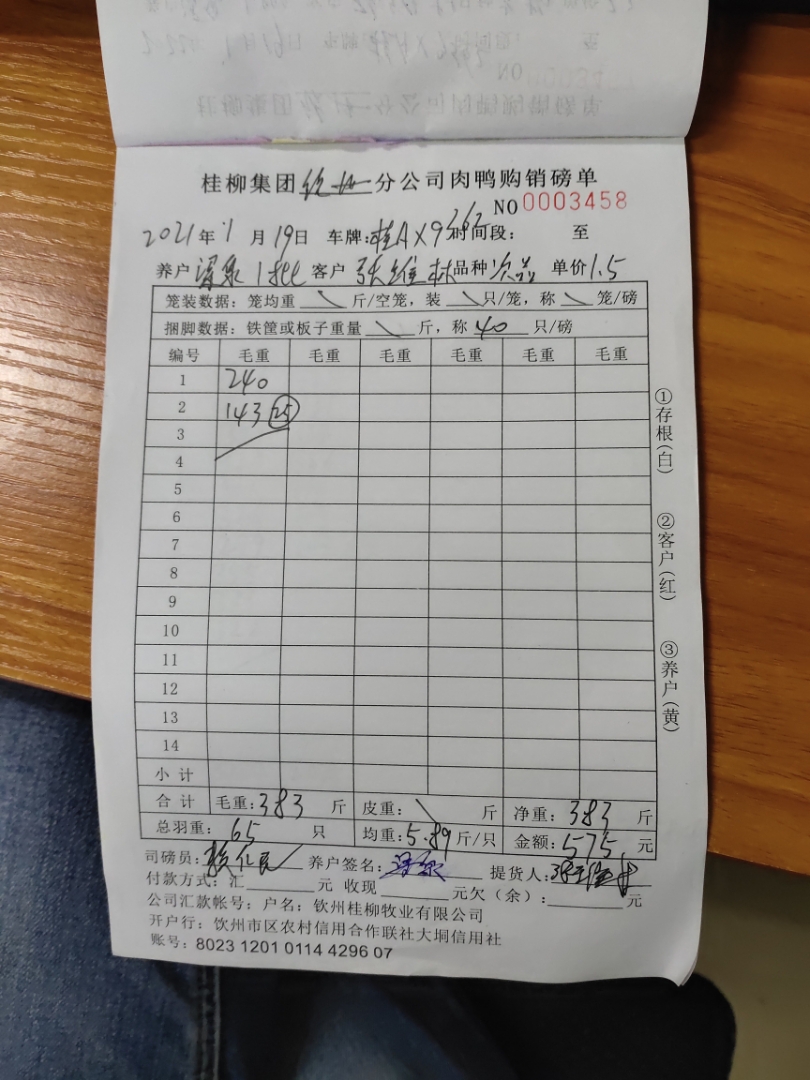 桂柳集团 分公司肉鸭购销磅单
NO 0003458
2021年1月19日 车牌:桂AX9262时间段: 至
养户 梁泉1批 客户 张维林 品种 次品 单价 1.5
笼装数据: 笼均重 \ 斤/空笼, 装 \ 只/笼, 称 \ 笼/磅
捆脚数据: 铁筐或板子重量 \ 斤, 称 40 只/磅
编号 毛重 毛重 毛重 毛重 毛重 毛重
1 240
2 143 25
3
4
5
6
7
8
9
10
11
12
13
14
小计
合计 毛重:383 斤 皮重: \ 斤 净重: 383 斤
总羽重: 65 只 均重:5.89斤/只 金额:575元
司磅员: 养户签名: 提货人:
付款方式: 汇 元 收现 元欠(余): 元
公司汇款帐号; 户名: 钦州桂柳牧业有限公司
开户行: 钦州市区农村信用合作联社大垌信用社
账号: 8023 1201 0114 4296 07
①存根(白)
②客户(红)
③养户(黄)